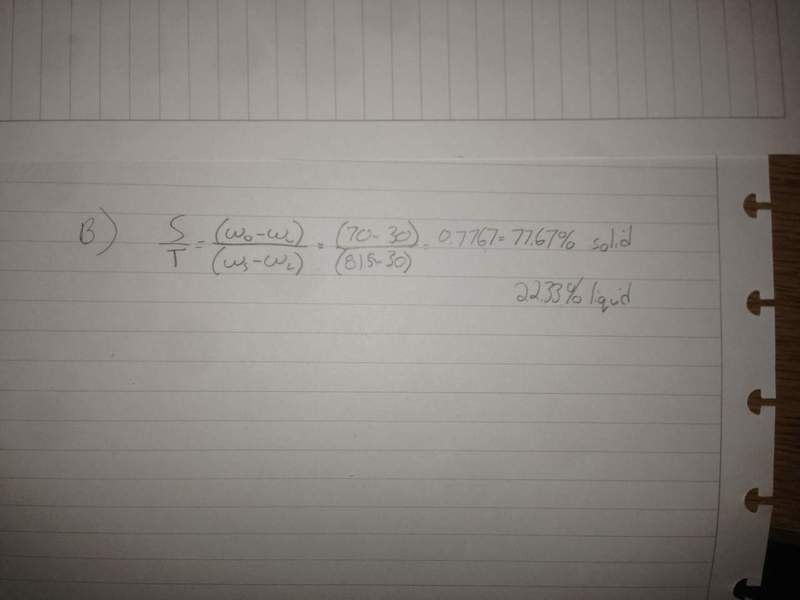 B) S/T = (ω₀-ω_L)/(ω_s-ω_L) = (70-30)/(81.5-30) = 0.7767 = 77.67% solid
22.33% liquid